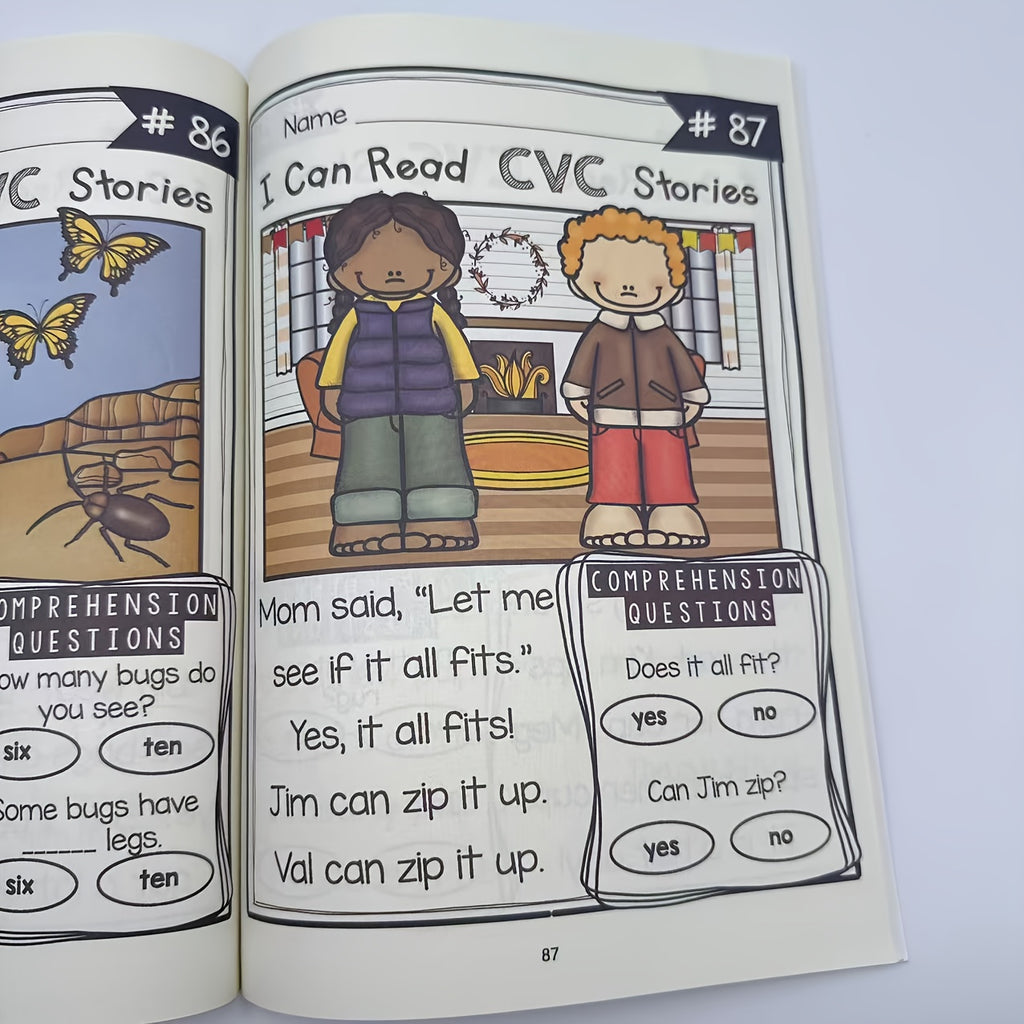 # 86
Stories
COMPREHENSION
QUESTIONS
many bugs do
you see?
six
ten
Some bugs have
______ legs.
six
ten
Name
# 87
I Can Read CVC Stories
Mom said, “Let me
see if it all fits.”
Yes, it all fits!
Jim can zip it up.
Val can zip it up.
COMPREHENSION
QUESTIONS
Does it all fit?
yes
no
Can Jim zip?
yes
no
87